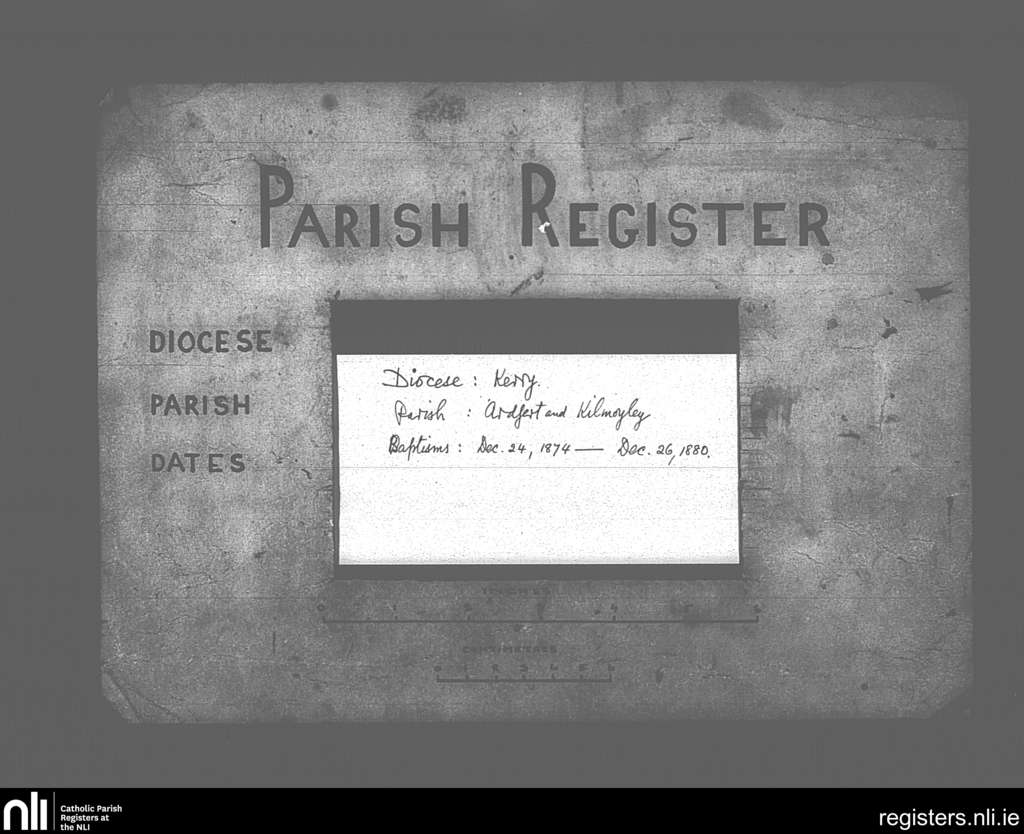 PARISH REGISTER
DIOCESE
PARISH
DATES
Diocese : Kerry.
Parish : Ardfert and Kilmoyley
Baptisms : Dec. 24, 1874 — Dec. 26, 1880.
INCHES
CENTIMETRES
nli
Catholic Parish
Registers at
the NLI
registers.nli.ie